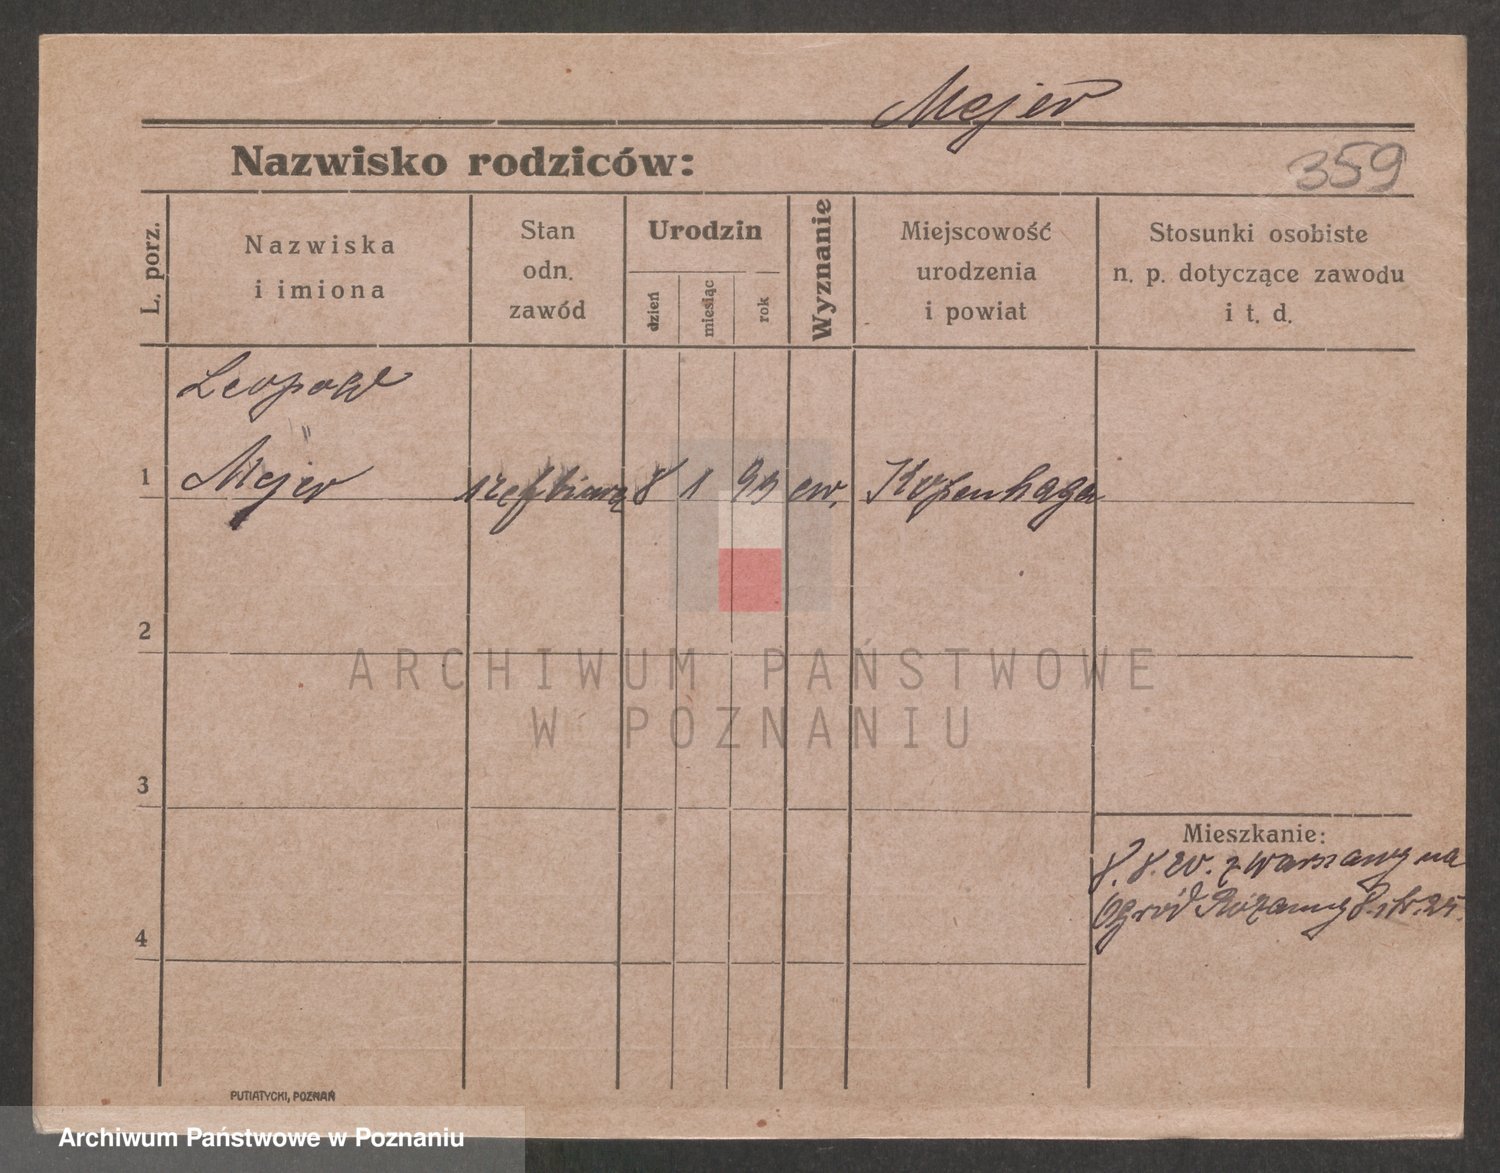 Mejer
Nazwisko rodziców:
359
L. porz.
Nazwiska
i imiona
Stan
odn.
zawód
Urodzin
dzień
miesiąc
rok
Wyznanie
Miejscowość
urodzenia
i powiat
Stosunki osobiste
n. p. dotyczące zawodu
i t. d.
Leopold
1 Mejer 8 1 99 ew. Kopenhaga
2
ARCHIWUM PAŃSTWOWE
W POZNANIU
3
Mieszkanie:
8. 8. z Warszawy na
Ogród Różanny 8. 25.
4
PUTIATYCKI, POZNAŃ
Archiwum Państwowe w Poznaniu